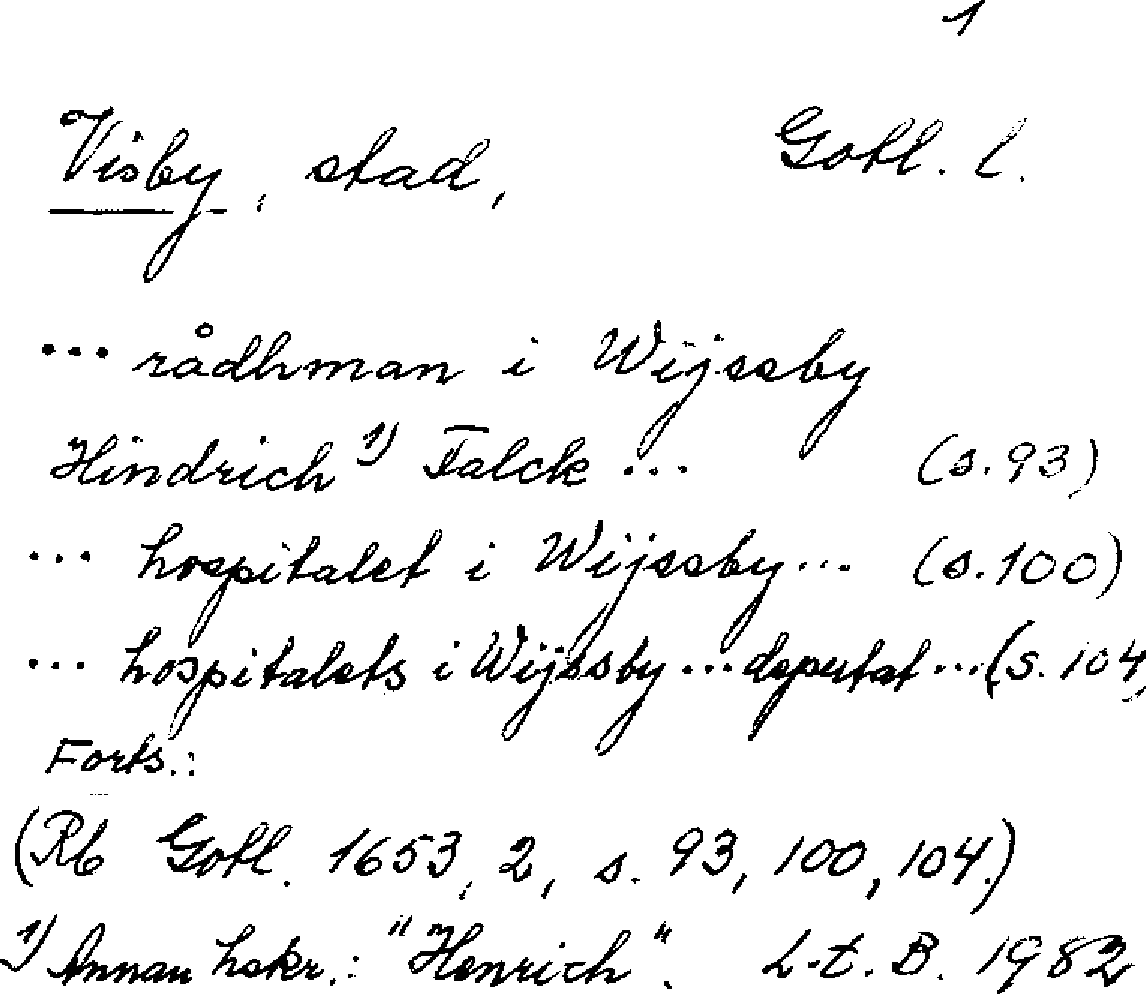 1
Visby, stad, Gotl. l.
... rådhman i Wijssby
Hindrich 1) Falck ... (s. 93)
... hospitalet i Wijssby ... (s. 100)
... hospitalets i Wijssby ... deputat ... (s. 104)
Forts.:
(Rb Gotl. 1653, 2, s. 93, 100, 104.)
1) Annan hskr.: "Henrich". L-t. B. 1982